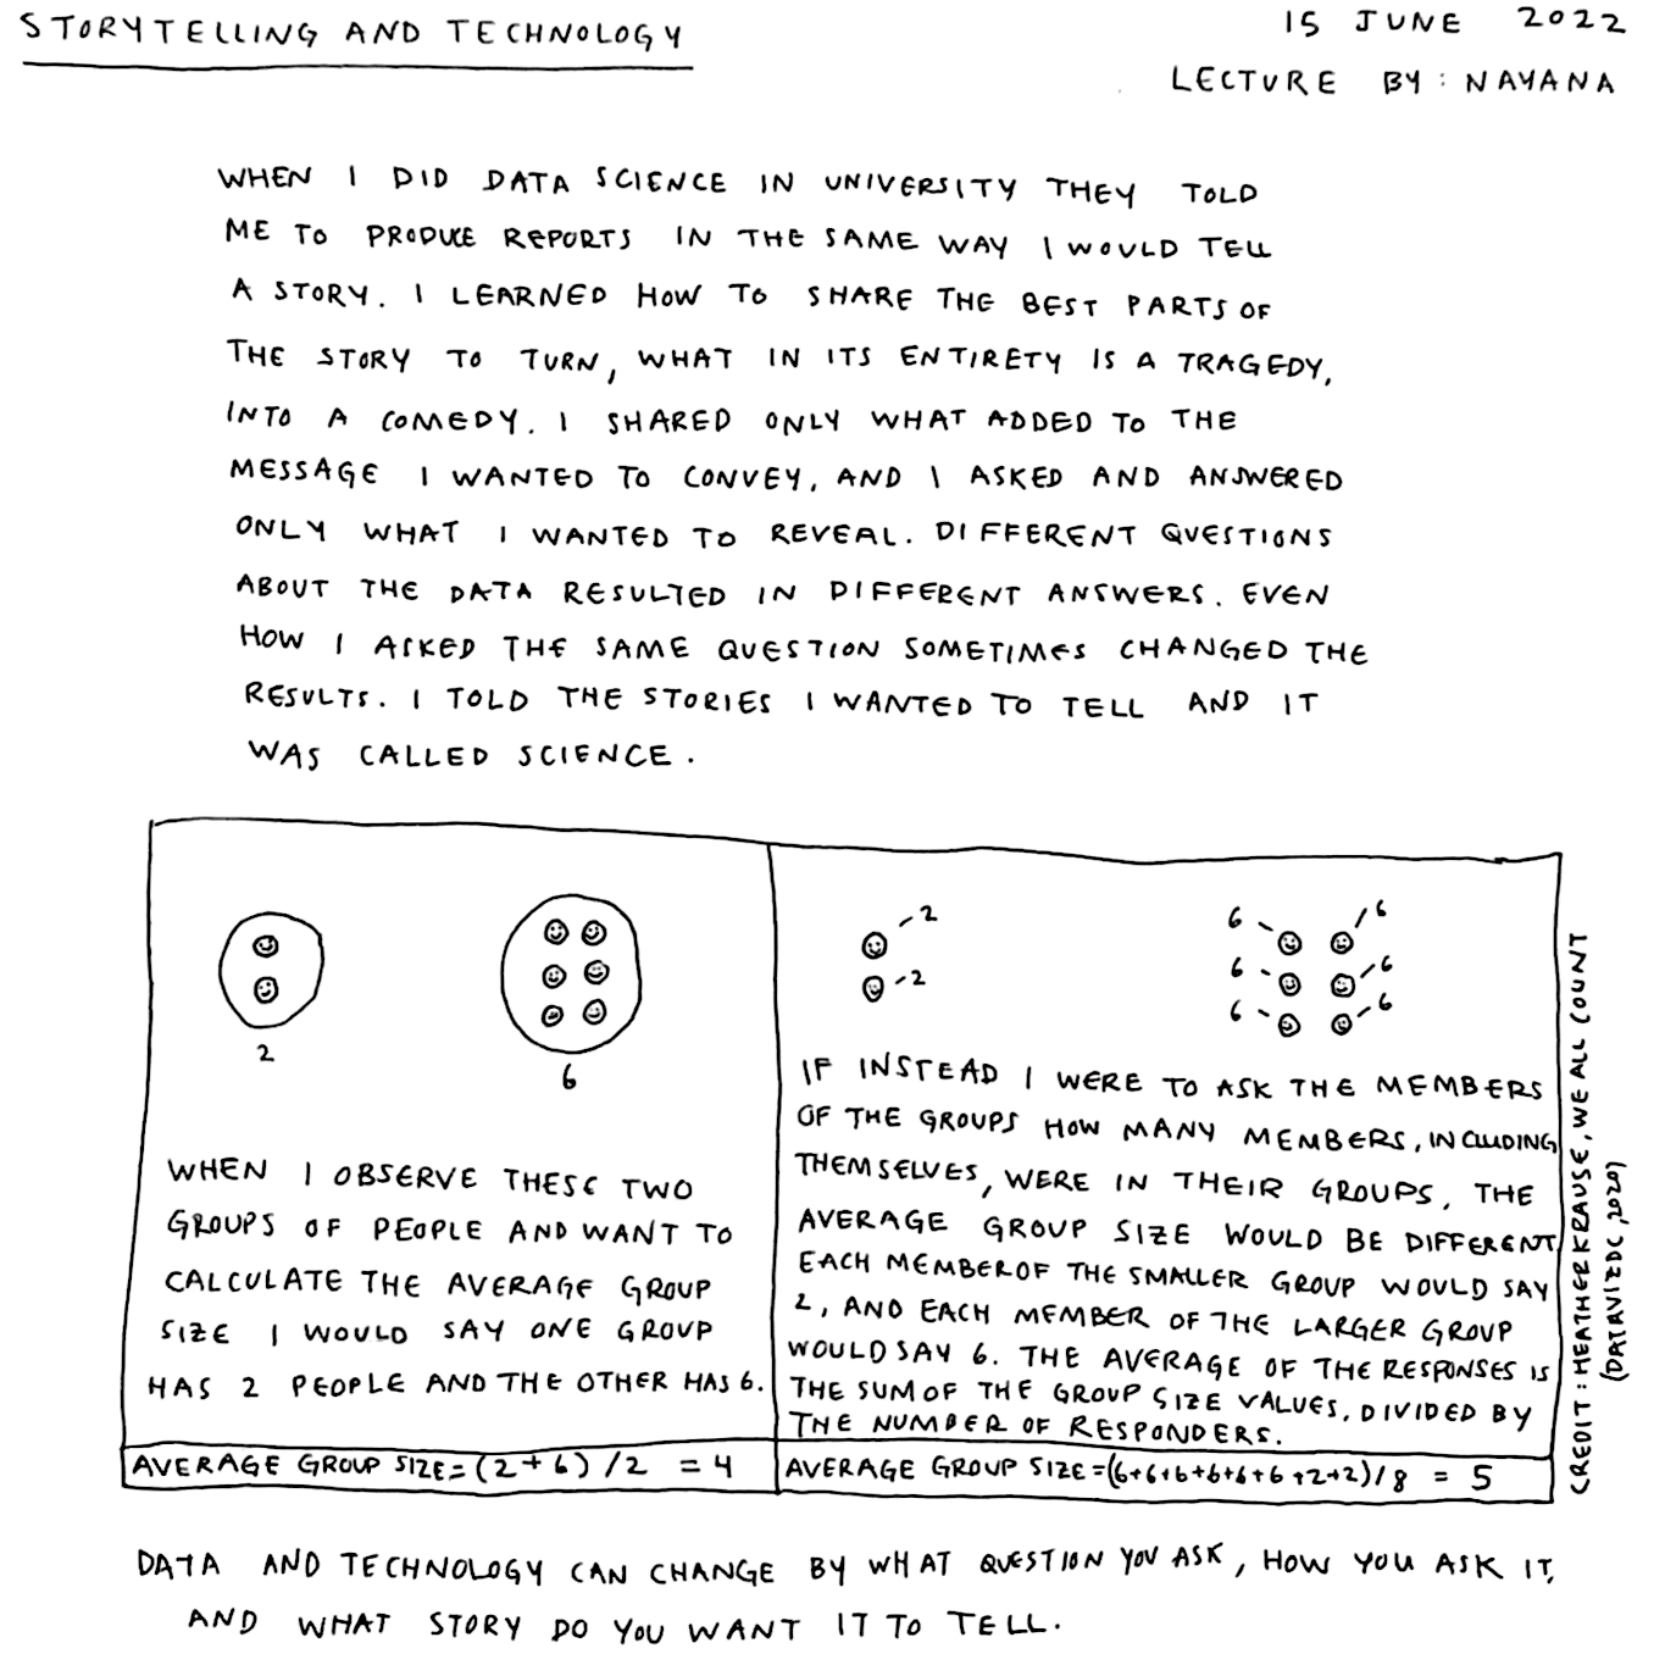 STORYTELLING AND TECHNOLOGY
15 JUNE 2022
LECTURE BY: NAYANA
WHEN I DID DATA SCIENCE IN UNIVERSITY THEY TOLD
ME TO PRODUCE REPORTS IN THE SAME WAY I WOULD TELL
A STORY. I LEARNED HOW TO SHARE THE BEST PARTS OF
THE STORY TO TURN, WHAT IN ITS ENTIRETY IS A TRAGEDY,
INTO A COMEDY. I SHARED ONLY WHAT ADDED TO THE
MESSAGE I WANTED TO CONVEY, AND I ASKED AND ANSWERED
ONLY WHAT I WANTED TO REVEAL. DIFFERENT QUESTIONS
ABOUT THE DATA RESULTED IN DIFFERENT ANSWERS. EVEN
HOW I ASKED THE SAME QUESTION SOMETIMES CHANGED THE
RESULTS. I TOLD THE STORIES I WANTED TO TELL AND IT
WAS CALLED SCIENCE.
2
6
WHEN I OBSERVE THESE TWO
GROUPS OF PEOPLE AND WANT TO
CALCULATE THE AVERAGE GROUP
SIZE I WOULD SAY ONE GROUP
HAS 2 PEOPLE AND THE OTHER HAS 6.
AVERAGE GROUP SIZE = (2+6)/2 = 4
2
2
6 6
6 6
6 6
IF INSTEAD I WERE TO ASK THE MEMBERS
OF THE GROUPS HOW MANY MEMBERS, INCLUDING
THEMSELVES, WERE IN THEIR GROUPS, THE
AVERAGE GROUP SIZE WOULD BE DIFFERENT
EACH MEMBER OF THE SMALLER GROUP WOULD SAY
2, AND EACH MEMBER OF THE LARGER GROUP
WOULD SAY 6. THE AVERAGE OF THE RESPONSES IS
THE SUM OF THE GROUP SIZE VALUES, DIVIDED BY
THE NUMBER OF RESPONDERS.
AVERAGE GROUP SIZE = (6+6+6+6+6+6+2+2)/8 = 5
CREDIT: HEATHER KRAUSE, WE ALL COUNT
(DATAVIZDC, 2020)
DATA AND TECHNOLOGY CAN CHANGE BY WHAT QUESTION YOU ASK, HOW YOU ASK IT,
AND WHAT STORY DO YOU WANT IT TO TELL.